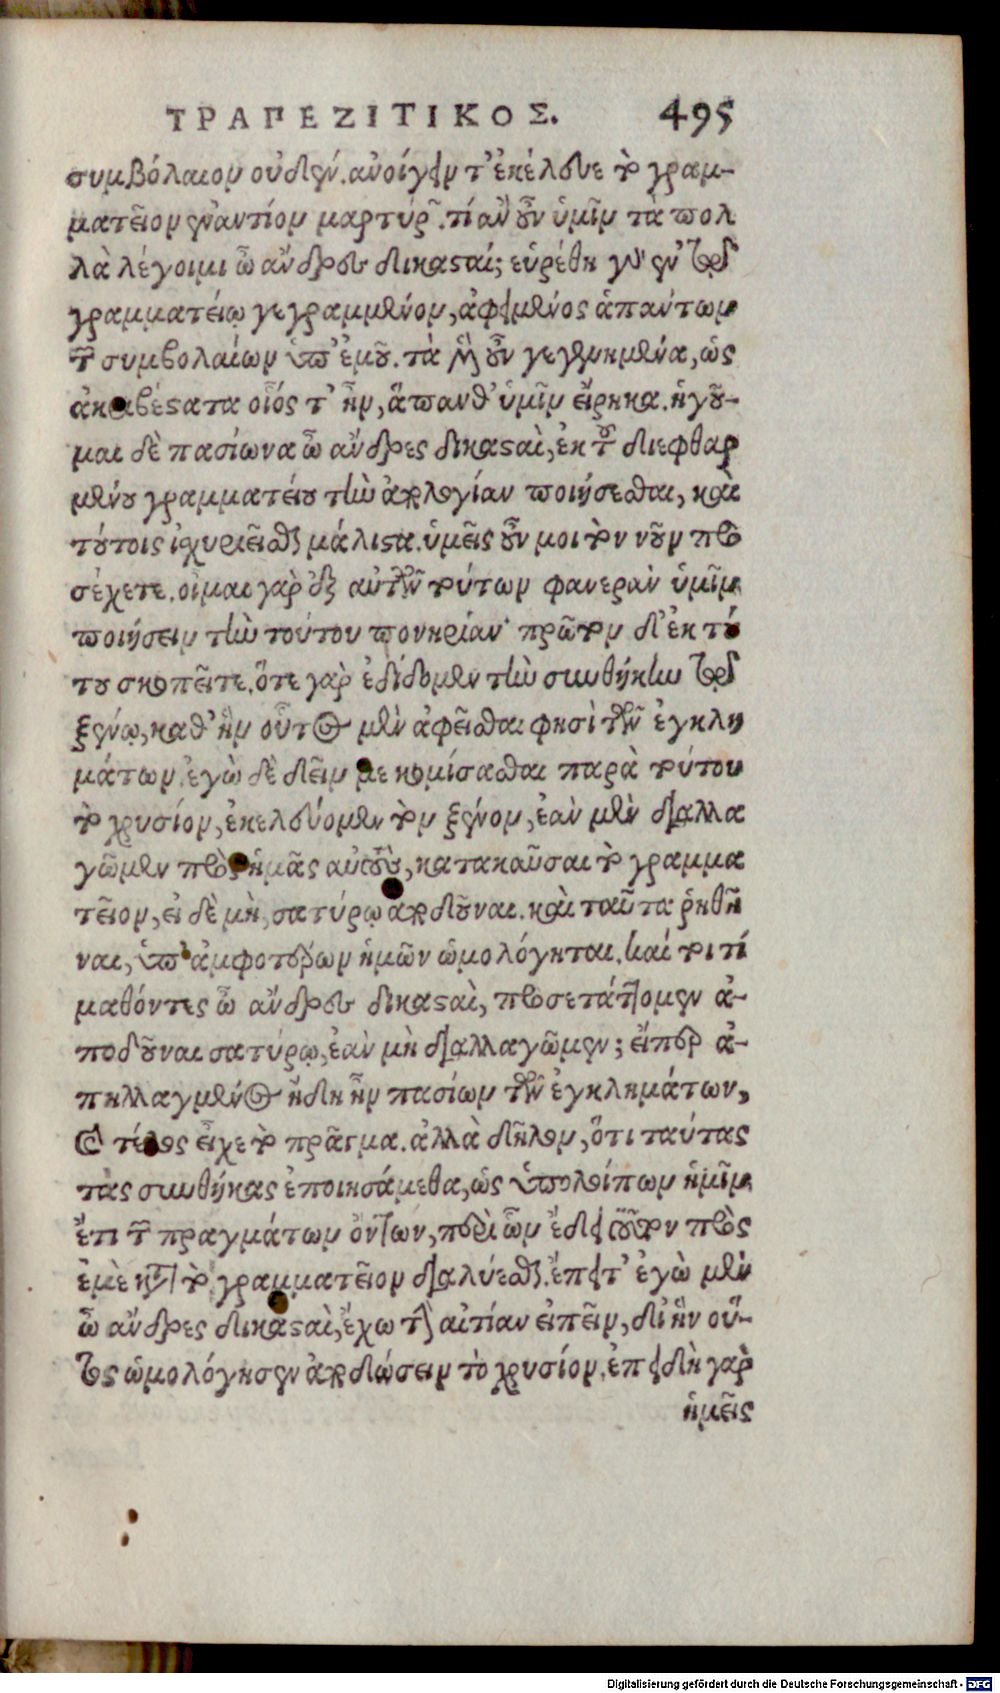 ΤΡΑΠΕΖΙΤΙΚΟΣ. 495
συμβόλαιον οὐδέν. ἀνοίγειν τ' ἐκέλευε τὸ γραμ-
ματεῖον ἐναντίον μαρτύρων. τί ἂν οὖν ὑμῖν τὰ πολ
λὰ λέγοιμι ὦ ἄνδρες δικασταί; εὑρέθη γὰρ ἐν τῷ
γραμματείῳ γεγραμμένον, ἀφειμένος ἁπάντων
τῶν συμβολαίων ὑπ' ἐμοῦ. τὰ μὲν οὖν γεγενημένα, ὡς
ἀκριβέστατα οἷός τ' ἦν, ἅπανθ' ὑμῖν εἴρηκα. ἡγοῦ-
μαι δὲ πασίωνα ὦ ἄνδρες δικασταὶ, ἐκ τοῦ διεφθαρ
μένου γραμματείου τὴν ἀπολογίαν ποιήσεσθαι, καὶ
τούτοις ἰσχυριεῖσθαι μάλιστα. ὑμεῖς οὖν μοι τὸν νοῦν προ
σέχετε. οἶμαι γὰρ ἐξ αὐτῶν τούτων φανερὰν ὑμῖν
ποιήσειν τὴν τούτου πονηρίαν· πρῶτον δ' ἐκ τού
του σκοπεῖτε. ὅτε γὰρ ἐδίδομεν τὴν συνθήκην τῷ
ξένῳ, καθ' ἣν οὗτος μὲν ἀφεῖσθαι φησὶ τῶν ἐγκλη
μάτων, ἐγὼ δὲ δεῖν με κομίσασθαι παρὰ τούτου
τὸ χρυσίον, ἐκελεύομεν τὸν ξένον, ἐὰν μὲν διαλλα
γῶμεν πρὸς ἡμᾶς αὐτοὺς, κατακαῦσαι τὸ γραμμα
τεῖον, εἰ δὲ μὴ, σατύρῳ ἀποδοῦναι. καὶ ταῦτα ῥηθῆ
ναι, ὑπ' ἀμφοτέρων ἡμῶν ὡμολόγηται. καί τοι τί
μαθόντες ὦ ἄνδρες δικασταὶ, προσετάττομεν ἀ-
ποδοῦναι σατύρῳ, ἐὰν μὴ διαλλαγῶμεν; εἴπερ ἀ-
πηλλαγμένος ἤδη ἦν πασίων τῶν ἐγκλημάτων,
καὶ τέλος εἶχε τὸ πρᾶγμα. ἀλλὰ δῆλον, ὅτι ταύτας
τὰς συνθήκας ἐποιησάμεθα, ὡς ὑπολοίπων ἡμῖν
ἔτι τῶν πραγμάτων ὄντων, περὶ ὧν ἔδει τοῦτον πρὸς
ἐμὲ κατὰ τὸ γραμματεῖον διαλύεσθαι. ἔπειτ' ἐγὼ μὲν
ὦ ἄνδρες δικασταὶ, ἔχω τὴν αἰτίαν εἰπεῖν, δι' ἣν οὗ-
τος ὡμολόγησεν ἀποδώσειν τὸ χρυσίον. ἐπειδὴ γὰρ
ἡμεῖς
Digitalisierung gefördert durch die Deutsche Forschungsgemeinschaft - DFG